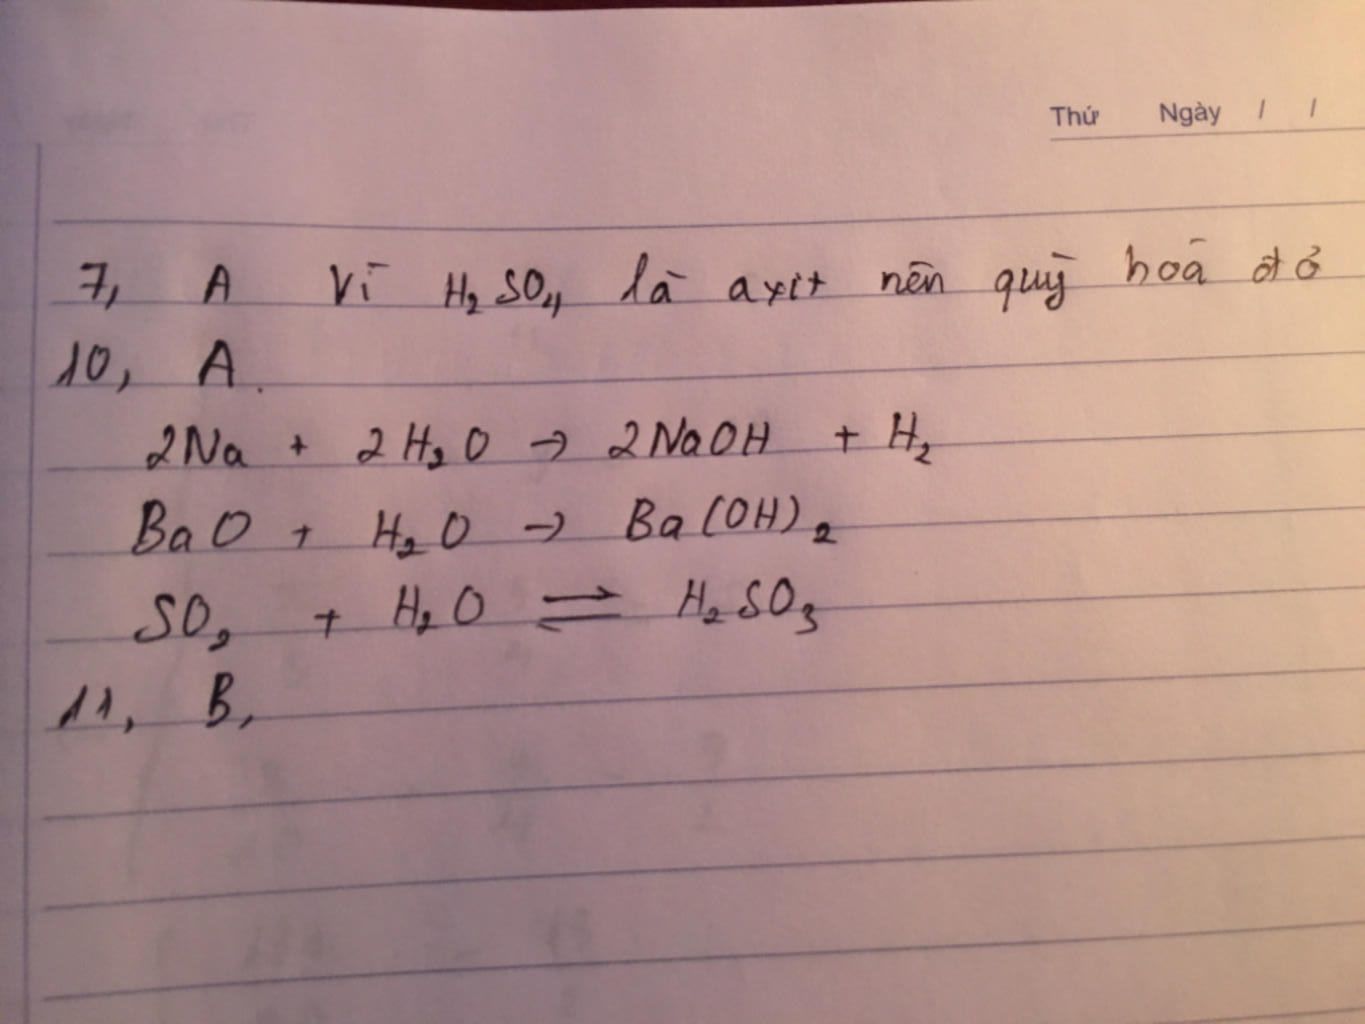 Thứ Ngày / /
7, A Vì H₂SO₄ là axit nên quỳ hoá đỏ
10, A.
2Na + 2H₂O → 2NaOH + H₂
BaO + H₂O → Ba(OH)₂
SO₂ + H₂O ⇌ H₂SO₃
11, B,